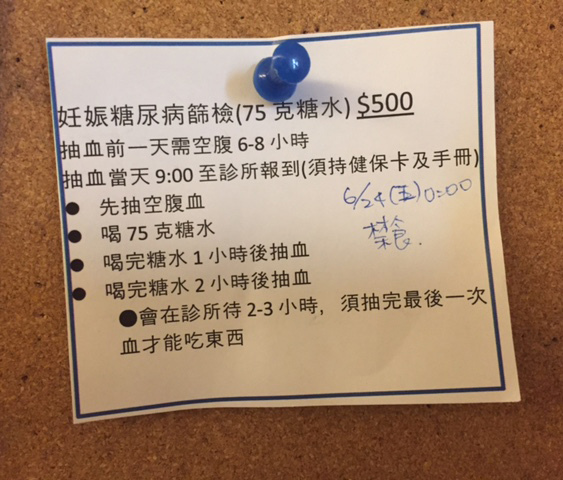 妊娠糖尿病篩檢(75 克糖水) $500
抽血前一天需空腹 6-8 小時
抽血當天 9:00 至診所報到(須持健保卡及手冊)
● 先抽空腹血
6/24(五)0:00
禁食.
● 喝 75 克糖水
● 喝完糖水 1 小時後抽血
● 喝完糖水 2 小時後抽血
●會在診所待 2-3 小時，須抽完最後一次
血才能吃東西